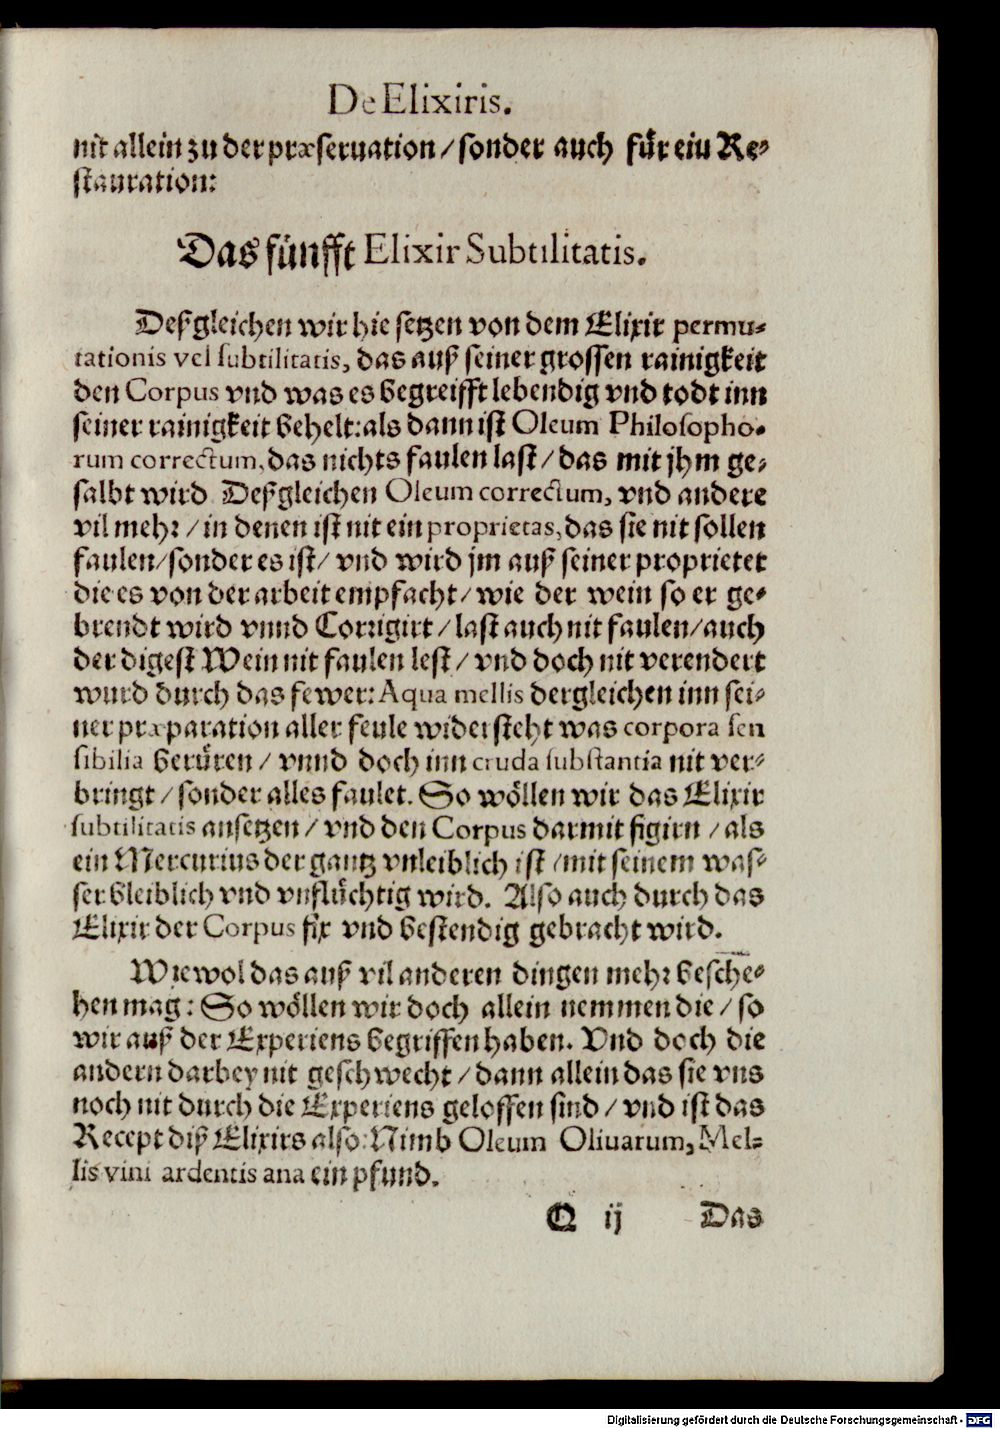 De Elixiris.
nit allein zu der præseruation / sonder auch für ein Re-
stauration:
Das fünfft Elixir Subtilitatis.
Deßgleichen wir hie setzen von dem Elixir permu-
tationis vel subtilitatis, das auß seiner grossen rainigkeit
den Corpus vnd was es begreifft lebendig vnd todt inn
seiner rainigkeit behelt: als dann ist Oleum Philosopho-
rum correctum, das nichts faulen last / das mit jhm ge-
salbt wird Deßgleichen Oleum correctum, vnd andere
vil mehr / in denen ist nit ein proprietas, das sie nit sollen
faulen / sonder es ist / vnd wird jm auß seiner proprietet
die es von der arbeit empfacht / wie der wein so er ge-
brendt wird vnnd Corrigirt / last auch nit faulen / auch
der digest Wein nit faulen lest / vnd doch nit verendert
wurd durch das fewer: Aqua mellis dergleichen inn sei-
ner præparation aller feule widersteht was corpora sen
sibilia berüren / vnnd doch inn cruda substantia nit ver-
bringt / sonder alles faulet. So wöllen wir das Elixir
subtilitatis ansetzen / vnd den Corpus darmit figirn / als
ein Mercurius der gantz vnleiblich ist / mit seinem was-
ser bleiblich vnd vnflüchtig wird. Also auch durch das
Elixir der Corpus fix vnd bestendig gebracht wird.
Wiewol das auß vil anderen dingen mehr besche-
hen mag: So wöllen wir doch allein nemmen die / so
wir auß der Experiens begriffen haben. Vnd doch die
andern darbey nit geschwecht / dann allein das sie vns
noch nit durch die Experiens geloffen sind / vnd ist das
Recept diß Elixirs also: Nimb Oleum Oliuarum, Mel-
lis vini ardentis ana ein pfund.
Q ij Das
Digitalisierung gefördert durch die Deutsche Forschungsgemeinschaft - DFG